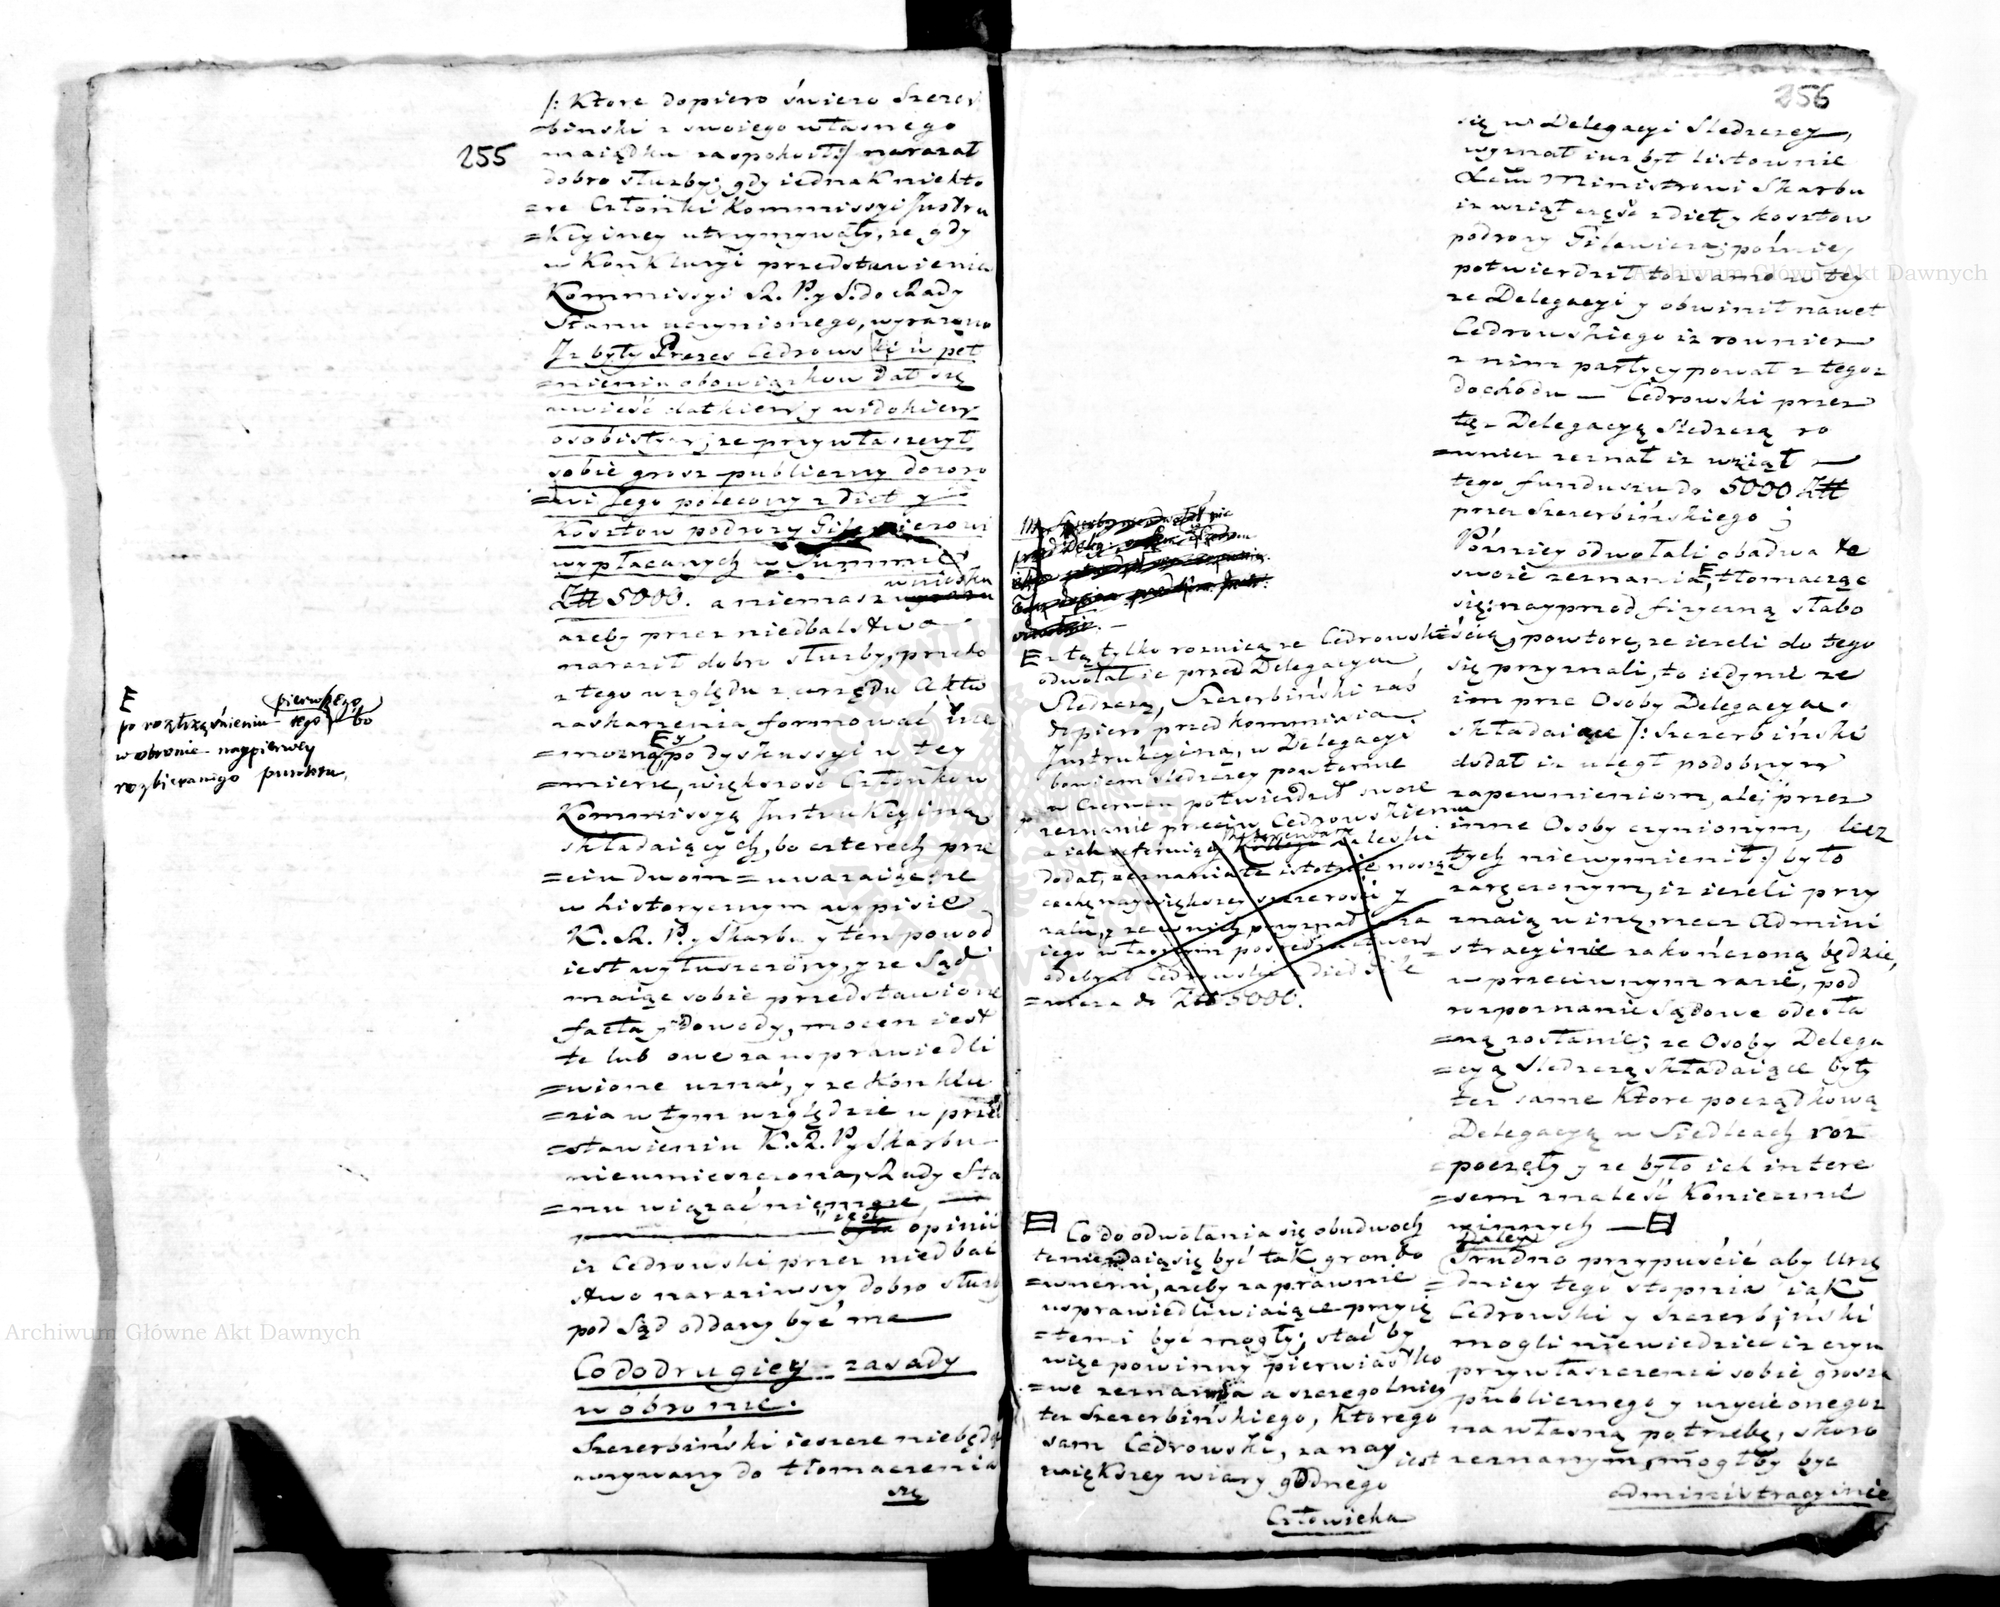 255
/: Ktore dopiero świeżo Szczer
=binski z swoiego własnego
maiątku zaspokoił :/ narażał
dobro służby; gdy iednak niekto
=re Członki Kommissyi Instru
=kcyiney utrzymywały, że gdy
w Konkluzyi przedstawienia
Kommissyi R. P. y S. do Rady
Stanu uczynionego, wyrażono
Iż były Prezes Cedrowski w peł
=nieniu obowiązkow dał się
uwieść datkiem y widokiem
osobistym; że przywłaszczył
sobie grosz publiczny dozoro
=wi Jego polecony z Diet y
Kosztow podrozy Gilewiczowi
wypłacanych w Summie
Zł 5000. a niemasz wniosku
ażeby przez niedbalstwo
naraził dobro służby, przeto
z tego względu z urzędu Aktu
zaskarżenia formować nie
=można, E y po dyskussyi w tey
=mierze, większość Członkow
Kommissyą Instrukcyiną
składaiących, bo czterech prze
=ciw dwom = uważaiąc że
w historycznym wypisie
K. R. P. y Skarbu y ten powod
iest wyłuszczony, y że Sąd
maiąc sobie przedstawione
facta y dowody, mocen iest
te lub owe za usprawiedli
=wione uznać, y że Konklu
=zia w tym względzie w przed
=stawieniu K. R. P. y Skarbu
nieumieszczona, Rady Sta
=nu wiązać niemoże,
opinii
iż Cedrowski przez niedbal
stwo naraziwszy dobro służby
pod Sąd oddany być ma
Co do drugiey zasady
w obronie.
Szczerbiński ieszcze niebędąc
wzywany do tłomaczenia
się
E
pierwszego
po roztrząśnieniu tego bo
w obronie naypierwey
rozbieranego punktu,
256
E z tą tylko roznicą że Cedrowski
odwołał ie przed Delegacyą
Sledczą, Szczerbiński zaś
dopiero przed kommissią
Instrukcyiną, w Delegacyi
bowiem sledczey powtornie
w Czerwcu potwierdził swoie
zeznanie przeciw Cedrowskiemu
dodał, zeznania te istotnie noszą
cechę naywiększey szczerości y
żalu, y że w nich przyznał za
iego własnym posrednictwem
odebrał Cedrowski z Diet Gile
=wicza do Zł 5000.
Co do odwołania się obudwoch
te nie zdaią się być tak grunto
=wnemi, ażeby za prawnie
usprawiedliwiaiące przyię
=temi być mogły; stać by
więc powinny pierwiastko
=we zeznania a szczegolniey
też Szczerbińskiego, ktorego
sam Cedrowski, za nay
większey wiary godnego
Człowieka
się w Delegacyi Sledczey,
wyznał iuż był listownie
JCW Ministrowi Skarbu
iż wziął część z diety kosztow
podrozy Gilewicza; poźniey
potwierdził toż samo w tey
że Delegacyi y obwinił nawet
Cedrowskiego iż rownież
z nim partycypował z tegoż
dochodu — Cedrowski przez
tęż Delegacyą Sledczą ro
=wnież zeznał iż wziął
tego funduszu do 5000 Zł
przez Szczerbińskiego;
Poźniey odwołali obadwa te
swoie zeznania, E tłomacząc
się: nayprzod fizyczną słabo
ścią, powtore, że ieżeli do tego
się przyznali, to iedynie że
im prze Osoby Delegacyą
składaiące /: Szczerbiński
dodał iż uległ podobnym
zapewnieniom, ale przez
inne Osoby czynionym, lecz
tych niewymienił :/ było
zaręczonym, iż ieżeli przy
znaią winę rzecz Admini
stracyinie zakończoną będzie,
w przeciwnym razie, pod
rozpoznanie Sądowe odesła
=ną zostanie; że Osoby Delega
=cyą Sledczą składaiące były
też same ktore początkową
Delegacyą w Siedlcach roz
poczęły y że było ich intere
=sem znaleść Koniecznie
winnych —
Daley
Trudno przypuścić aby Urzę
=dnicy tego stopnia iak
Cedrowski y Szczerbiński
mogli niewiedzieć iż czyn
przywłaszczenia sobie grosza
publicznego y użycie onegoż
na własną potrzebę, skoro
iest zeznanym, mogłby być
administracyinie